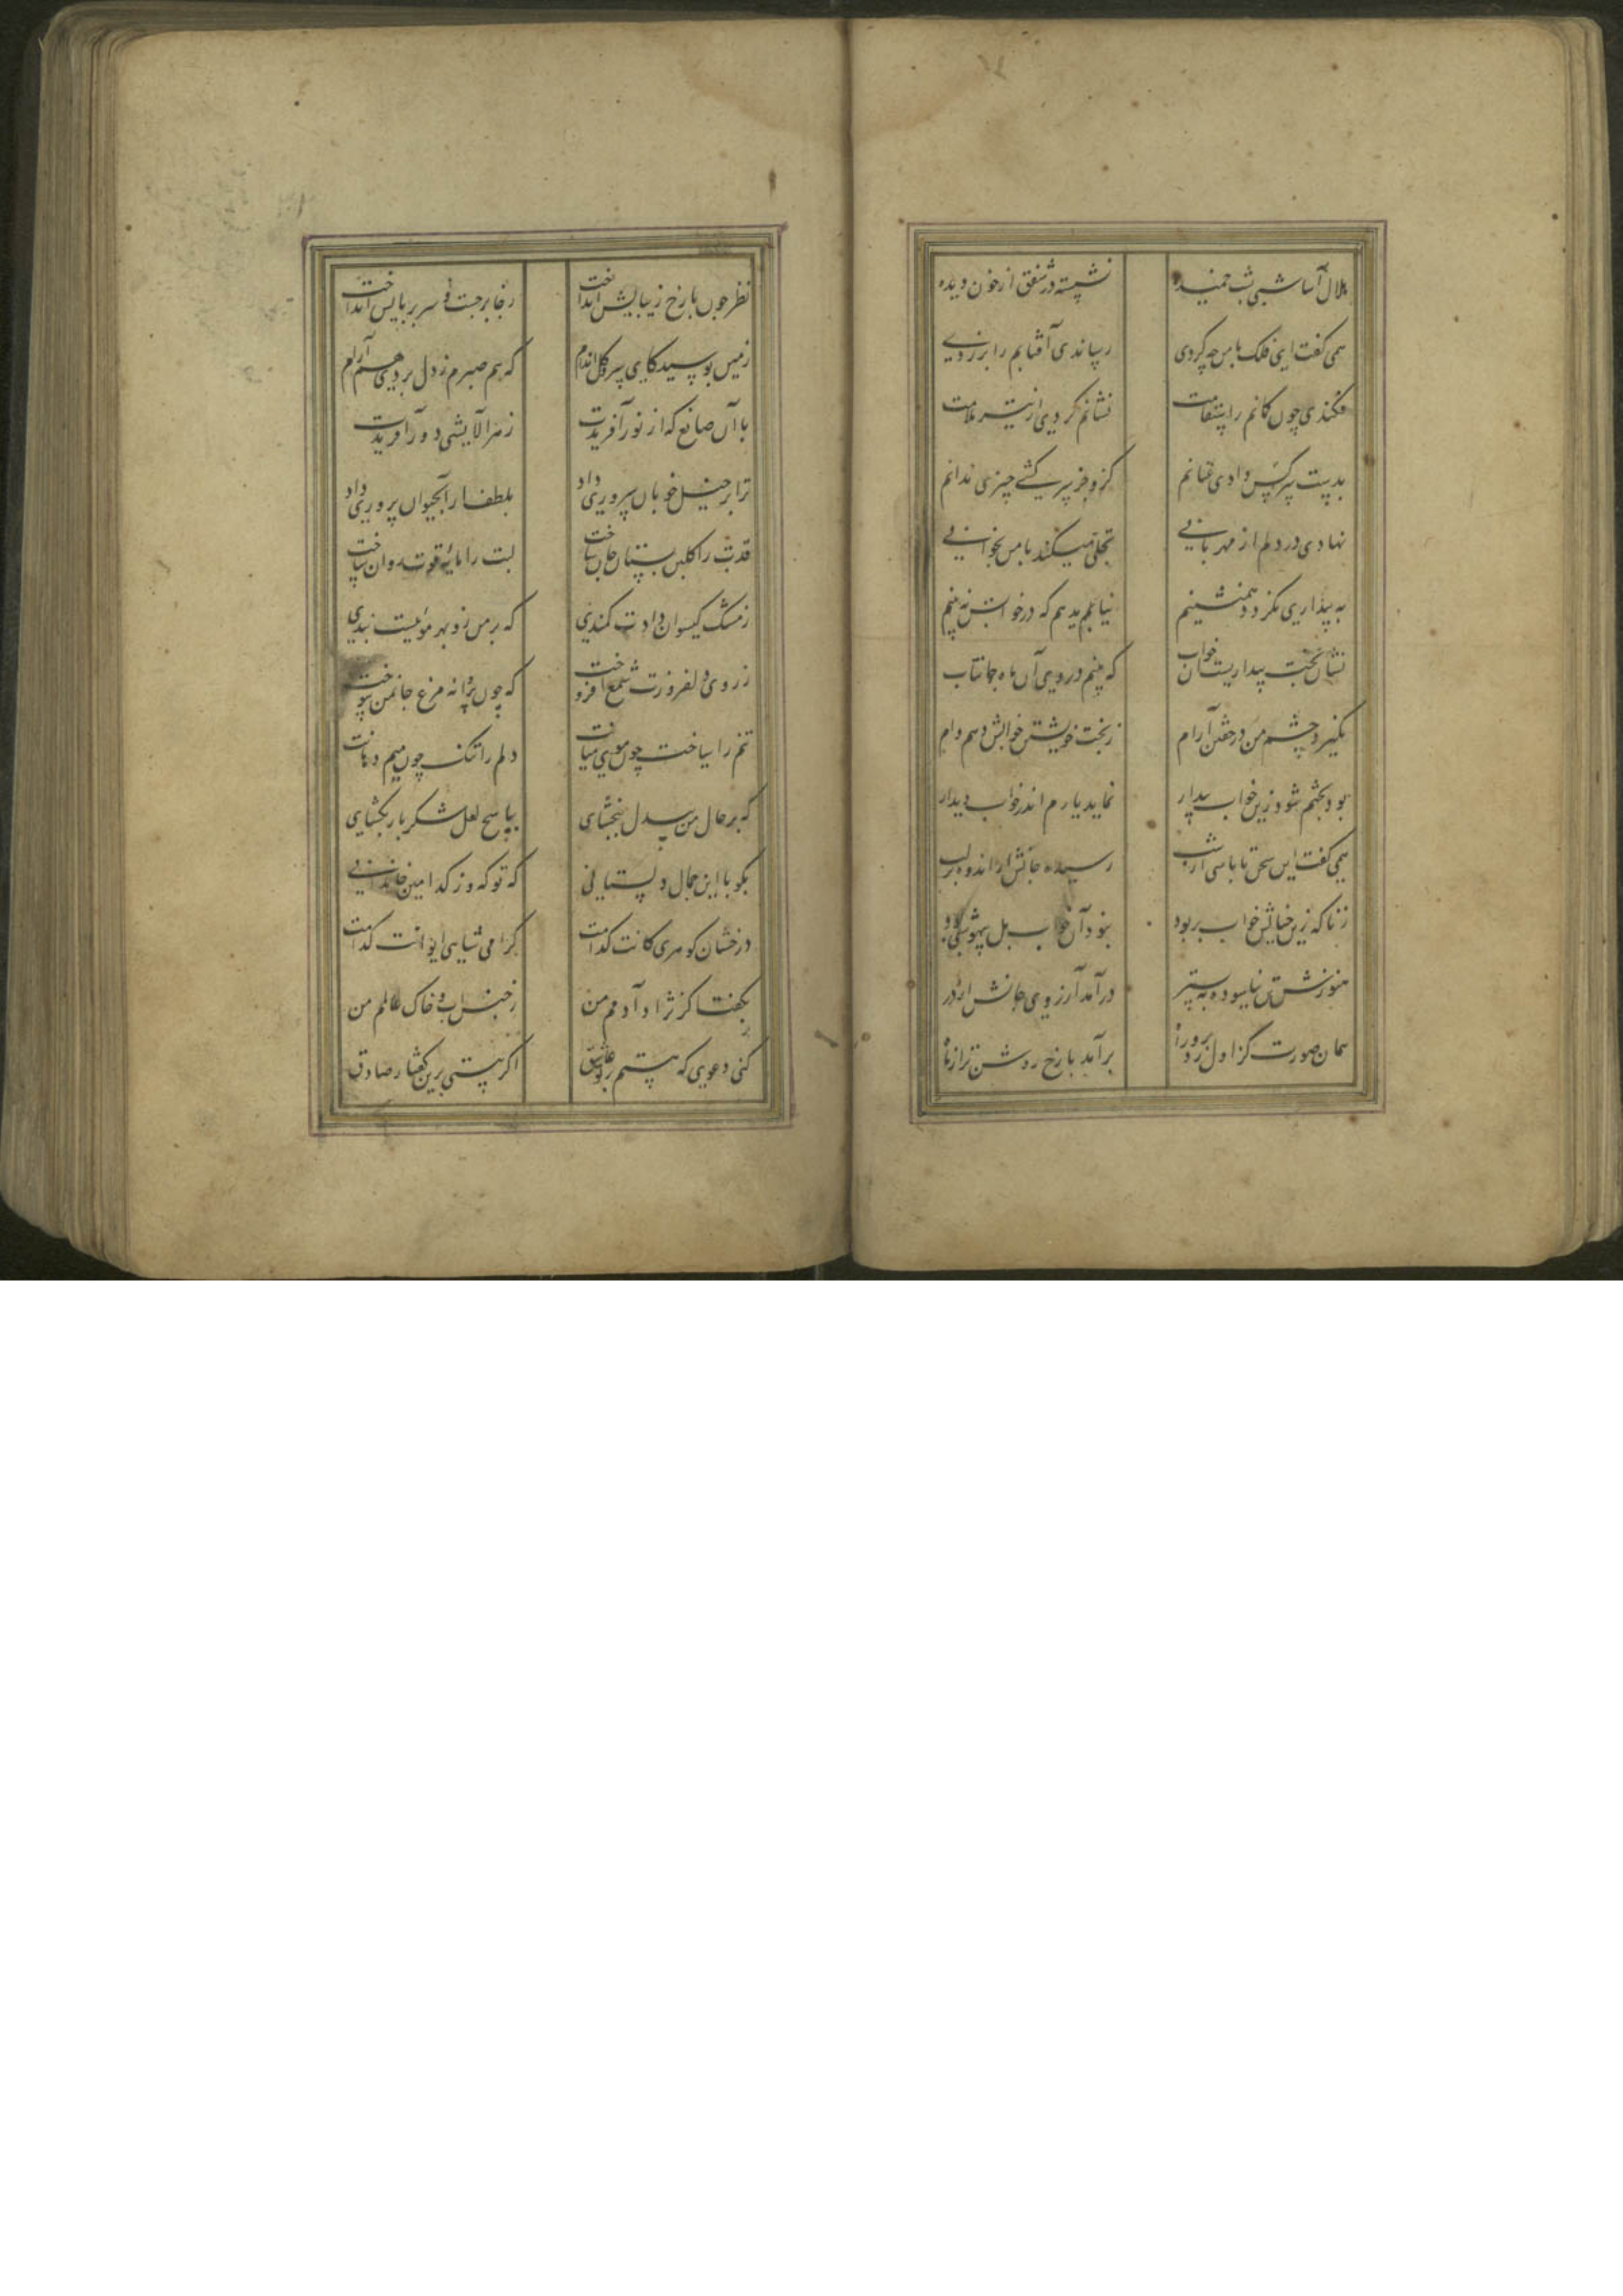 هلال آسا شبی پشت خمیده نشسته در شفق از خون دیده
همی گفت ای فلک با من چه کردی رساندی آفتابم را بزردی
فکندی چون کمانم ز استقامت نشانم کردی از تیر ملامت
بدست سرکشی دادی عنانم کزو جز سرکشی چیزی ندانم
نهادی در دلم از مهر تابی تجلی میکند با من بخوابی
به بیداری نگردد همنشینم نیابم هم که در خوابش به بینم
نشان بخت بیداریست آن خواب که بینم در وی آن ماه جهانتاب
نگیرد چشم من در خفتن آرام ز بخت خویشتن خوابش دهم وام
بود بختم شود زین خواب بیدار نماید یارم اندر خواب دیدار
همی گفت این سخن تا پاسی از شب رسیده جانش از اندوه بر لب
ز ناگه زین خیالش خواب بربود نبود آن خواب بل بیهوشیی بود
هنوزش تن نیاسوده به بستر درآمد آرزوی جانش از در
همان صورت کز اول زد برو راه برآمد با رخ روشن‌تر از ماه
نظر چون با رخ زیبایش انداخت ز جا برجست و سر بر پایش انداخت
زمین بوسید کای سرو گل اندام که هم صبرم ز دل بردی هم آرام
با آن صانع که از نور آفریدت ز هر آلایشی دور آفریدت
ترا بر خیل خوبان سروری داد بلطف از آب حیوان پروری داد
قدت را گلبن بستان جان ساخت لبت را مایهٔ قوت روان ساخت
ز مشک گیسوان دادت کمندی که بر من زو بهر موئیست بندی
ز روی دلفروزت شمعی افروخت که چون پروانه مرغ جان من سوخت
تنم را ساخت چون موی میانت دلم را تنگ چون میم دهانت
که بر حال من بیدل ببخشای بپاسخ لعل شکربار بگشای
بگو با این جمال و دلستانی که تو که وز کدامین خاندانی
درخشان گوهری کانت کدامست گرامی شاهی ایوانت کدامست
بگفتا کز نژاد آدمم من ز جنس آب و خاک عالمم من
کنی دعوی که هستم بر تو عاشق اگر هستی برین گفتار صادق